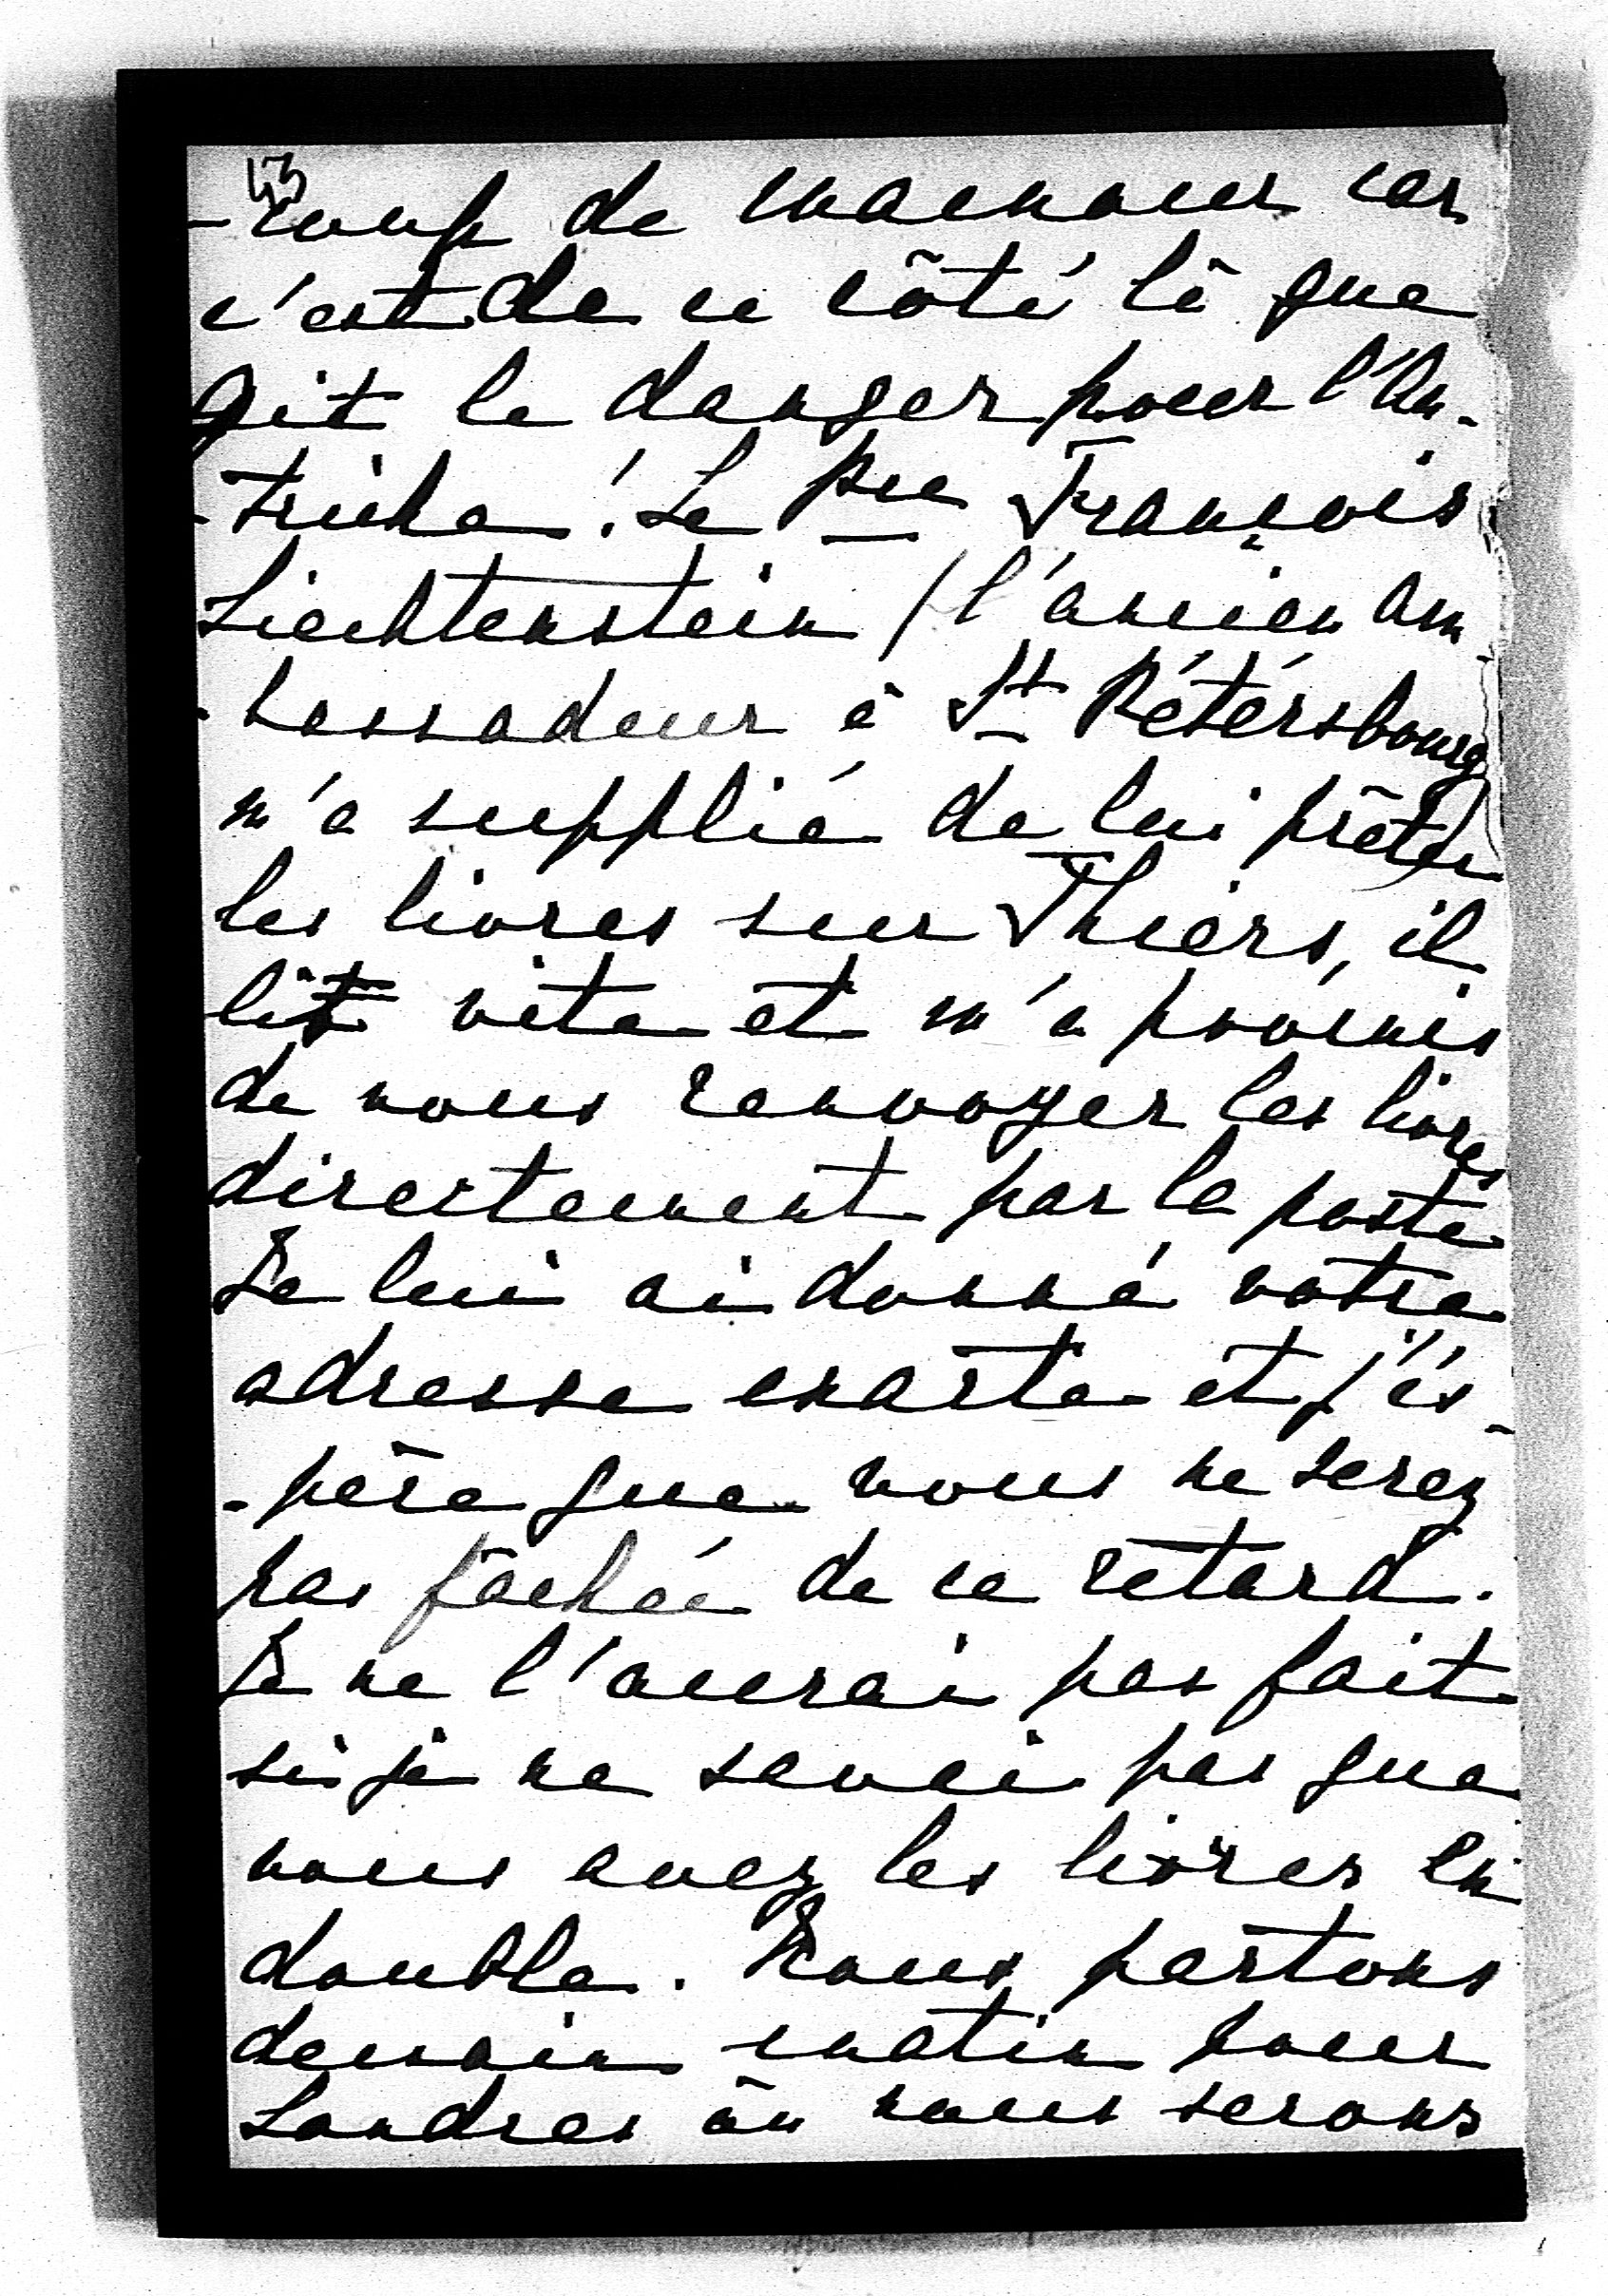 43
-coup de
c'est de ce côté là que
gît le danger pour l'Au-
-triche! Le Pce François
Liechtenstein (l'ancien am-
-bassadeur à St Pétérsbourg)
m'a supplié de lui prêter
les livres sur Thiers, il
lit vite et m'a promis
de vous renvoyer les livres
directement par la poste
Je lui ai donné votre
adresse exacte et j'és-
-père que vous ne serez
pas fâchée de ce retard.
Je ne l'aurai pas fait
si je ne savai pas que
vous avez les livres en
double. Nous partons
demain matin pour
Londres où nous serons